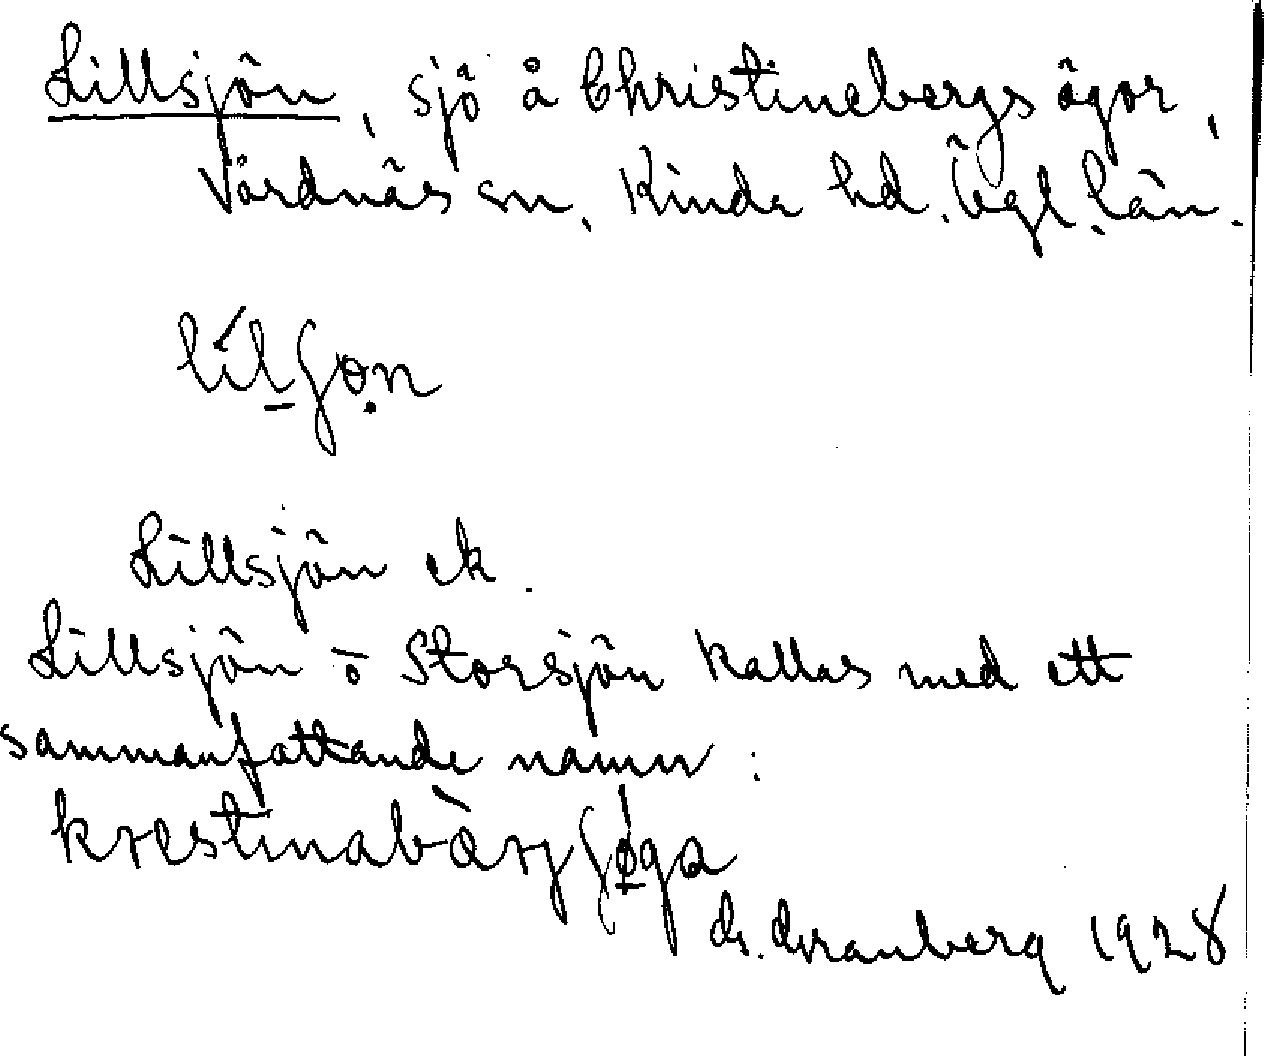 Lillsjön, sjö å Christinebergs ägor,
Vårdnäs sn, Kinda hd, Ögl. län.
lílʃọn
Lillsjön ek.
Lillsjön o Storsjön kallas med ett
sammanfattande namn:
krestinabàrjʃøga
G. Granberg 1928